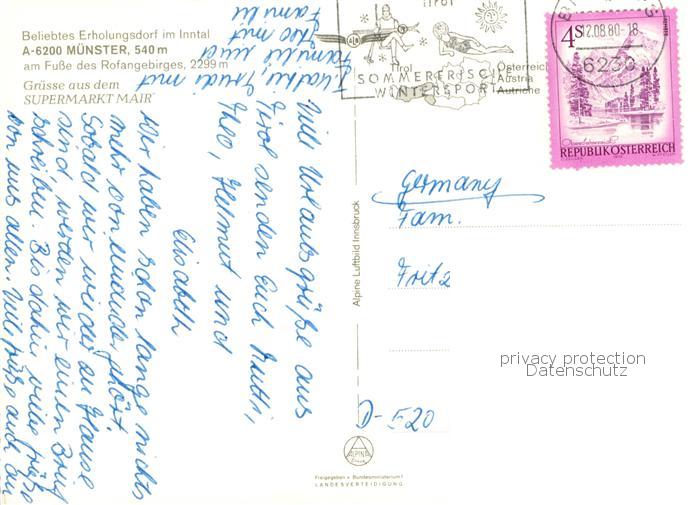 Beliebtes Erholungsdorf im Inntal
A-6200 MÜNSTER, 540 m
am Fuße des Rofangebirges, 2299 m
Grüsse aus dem
SUPERMARKT MAIR
Tirol
SOMMERFRISCHE
WINTERSPORT
Tirol
Österreich
Austria
Autriche
12.08.80-18
6230
4 S
REPUBLIK ÖSTERREICH
Viele Urlaubsgrüße aus
Tirol senden Euch Mutti,
Theo, Helmut und
Elisabeth
Wir haben schon lange nichts
mehr voneinander gehört.
Sobald wir wieder zu Hause
sind werden wir einen Brief
schreiben. Bis dahin viele Grüße
von uns allen. Viele Grüße auch an
Familie und
Familie
Germany
Fam.
Fritz
D-520
Alpine Luftbild Innsbruck
ALPINE
Freigegeben v. Bundesministerium f.
LANDESVERTEIDIGUNG.
privacy protection
Datenschutz